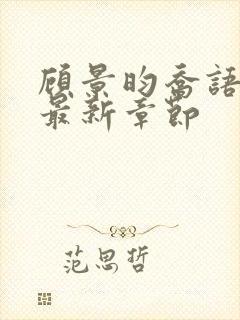 顾景昀喬語
最新章節
范思哲